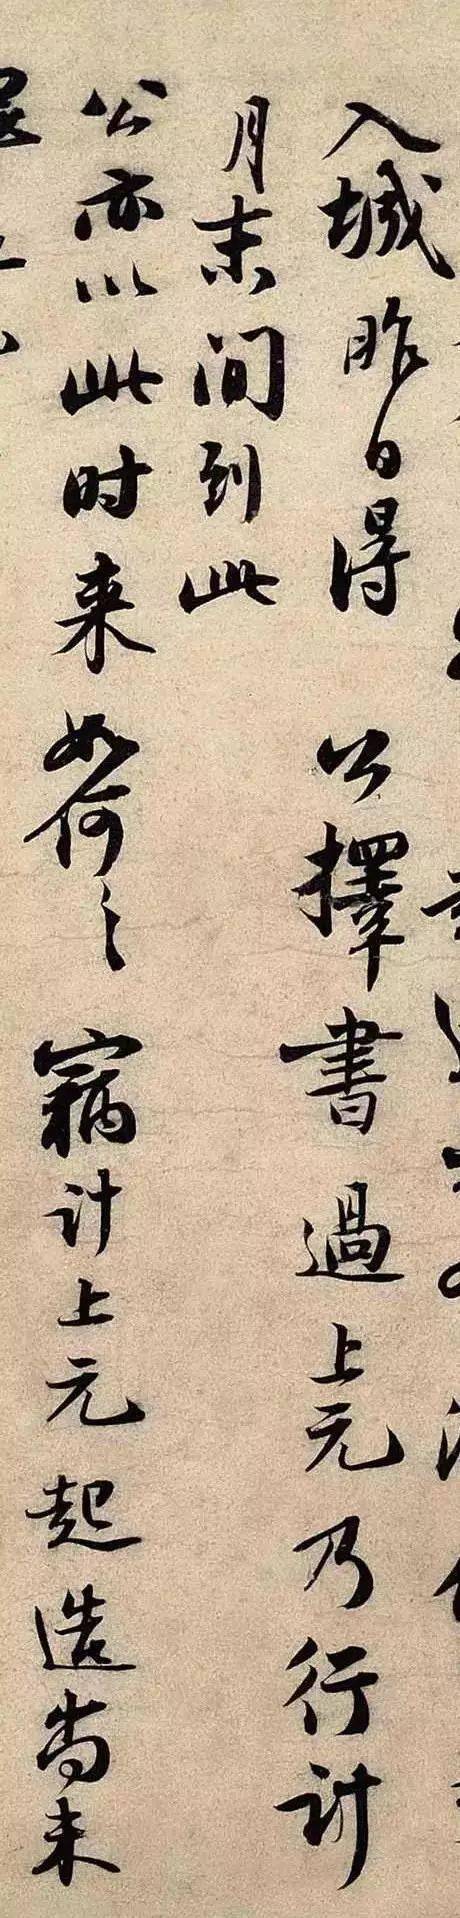 入城昨日得 公擇書過上元乃行計
月末間到此
公亦以此时来如何〻竊计上元起造尚未